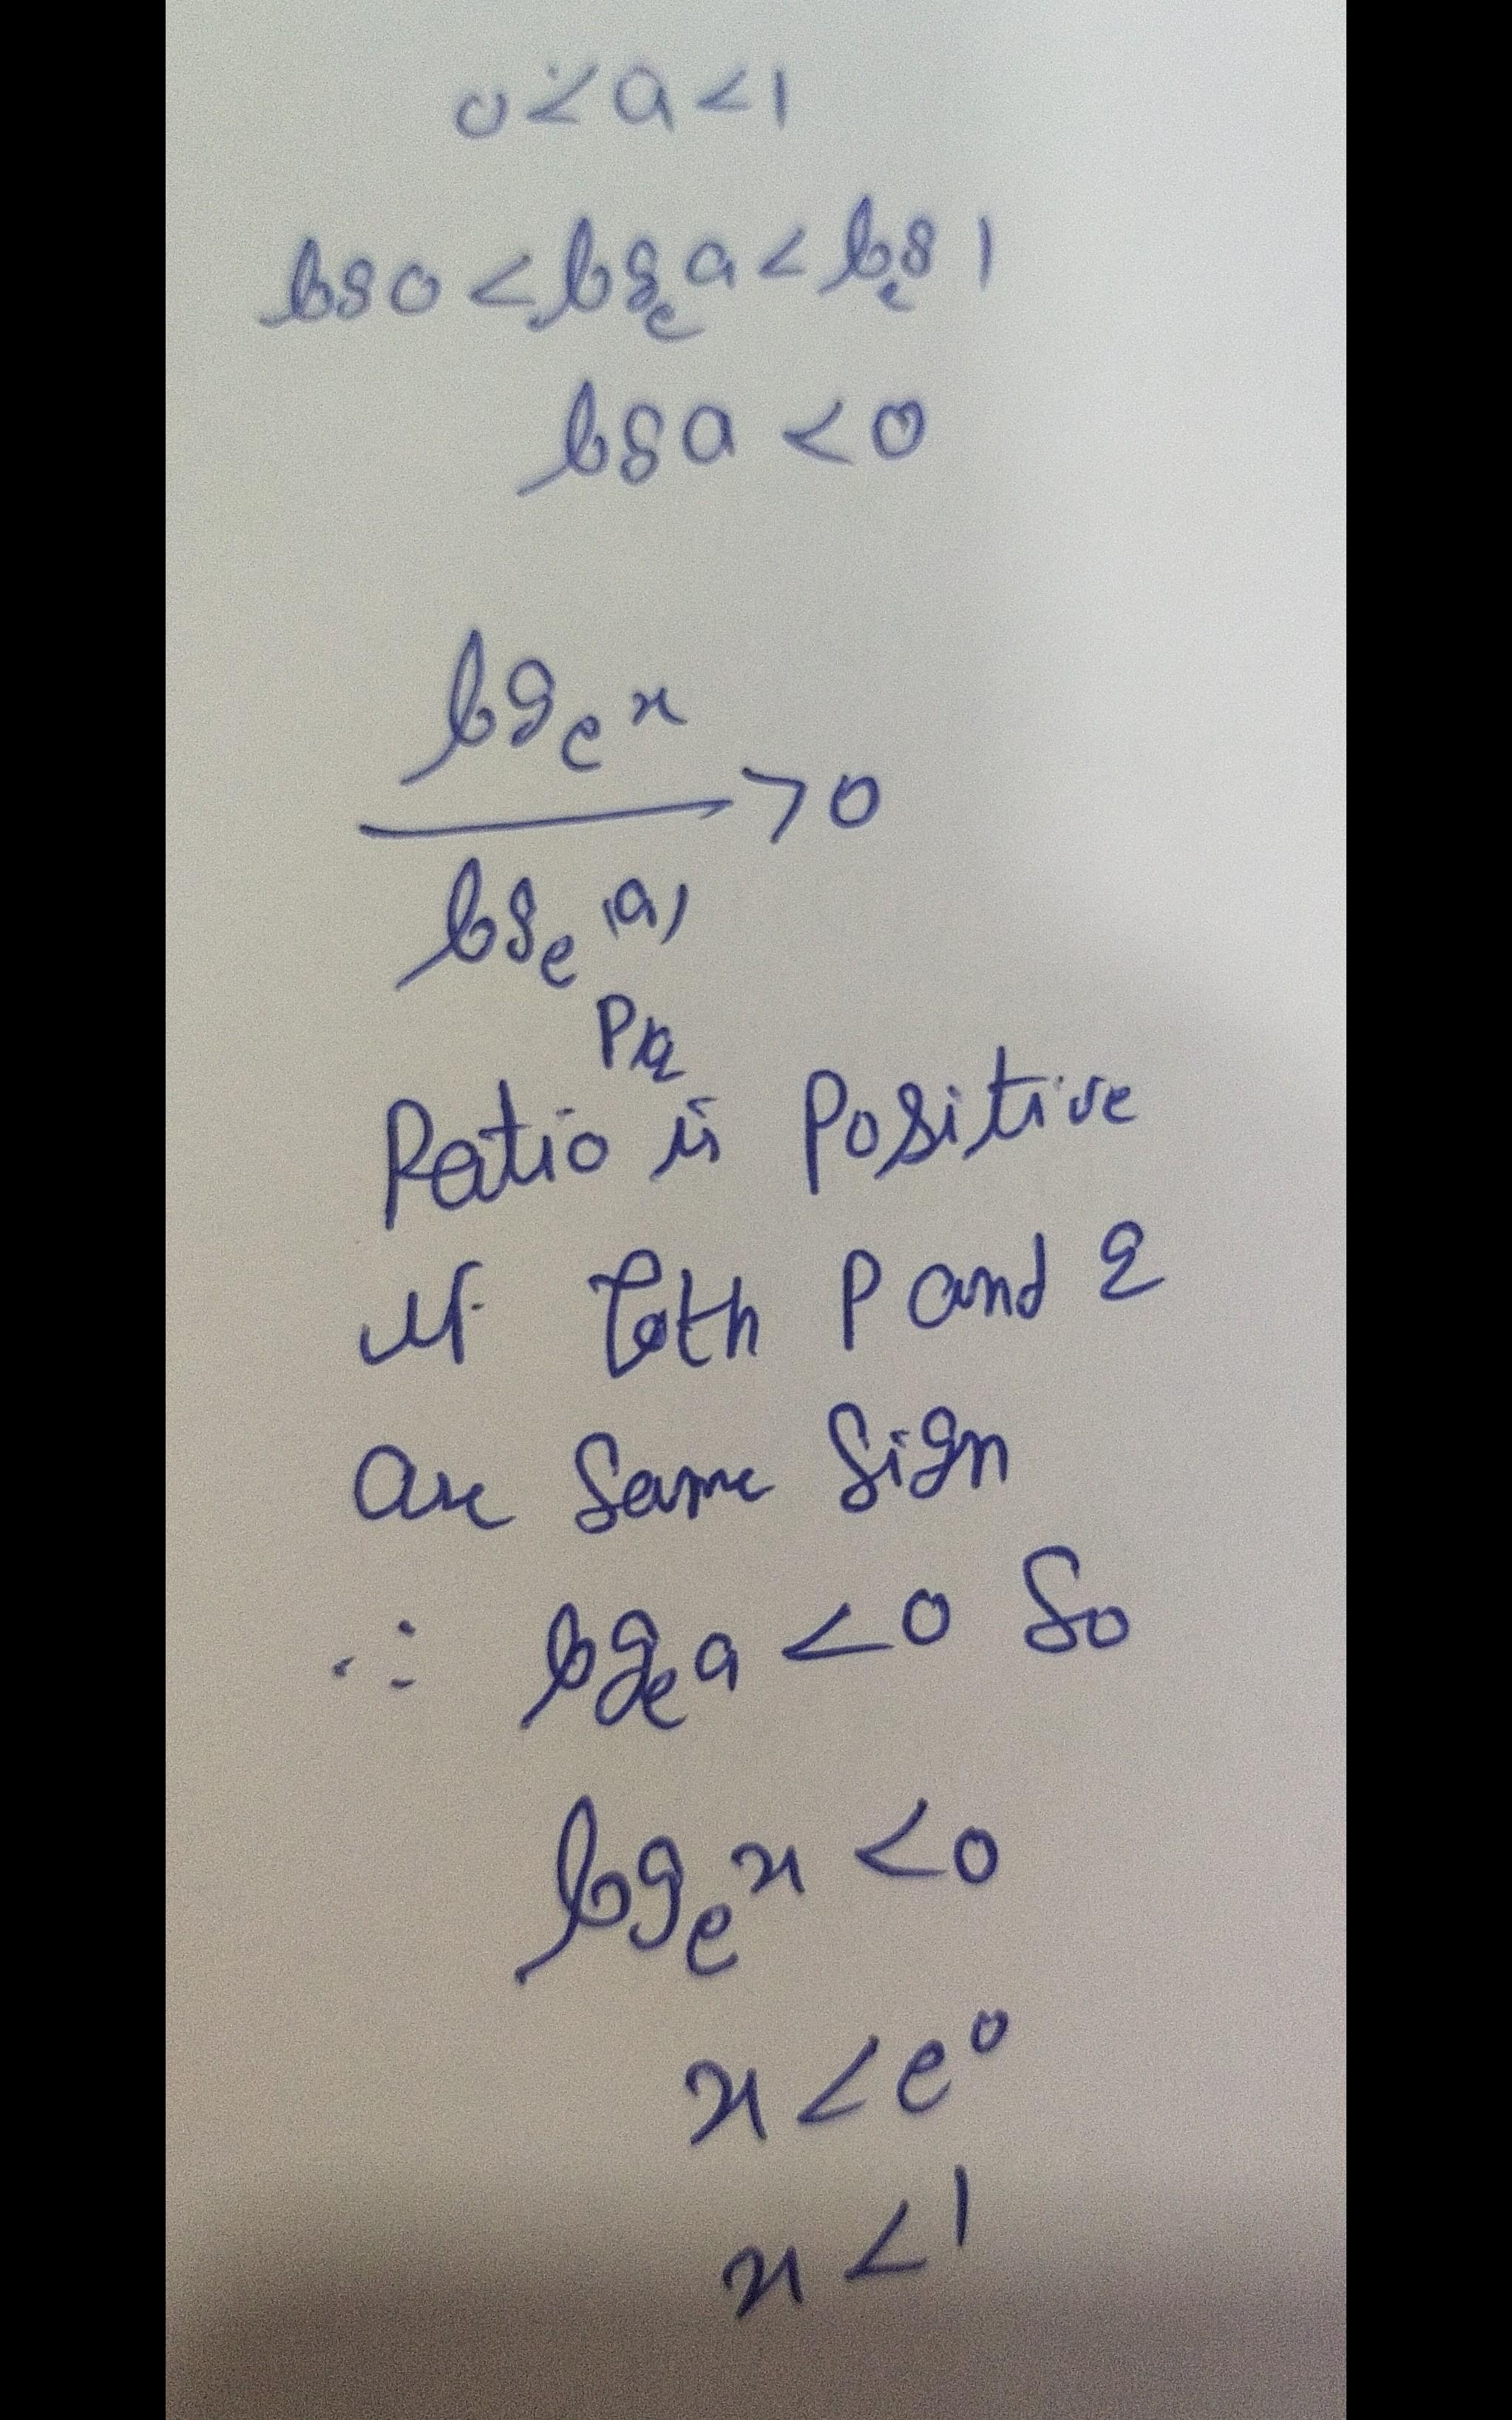 0 < a < 1
log 0 < logₑ a < logₑ 1
log a < 0
logₑ x
> 0
logₑ (a)
P/q
Ratio is Positive
if both P and q
are same sign
∴ logₑ a < 0 So
logₑ x < 0
x < e⁰
x < 1